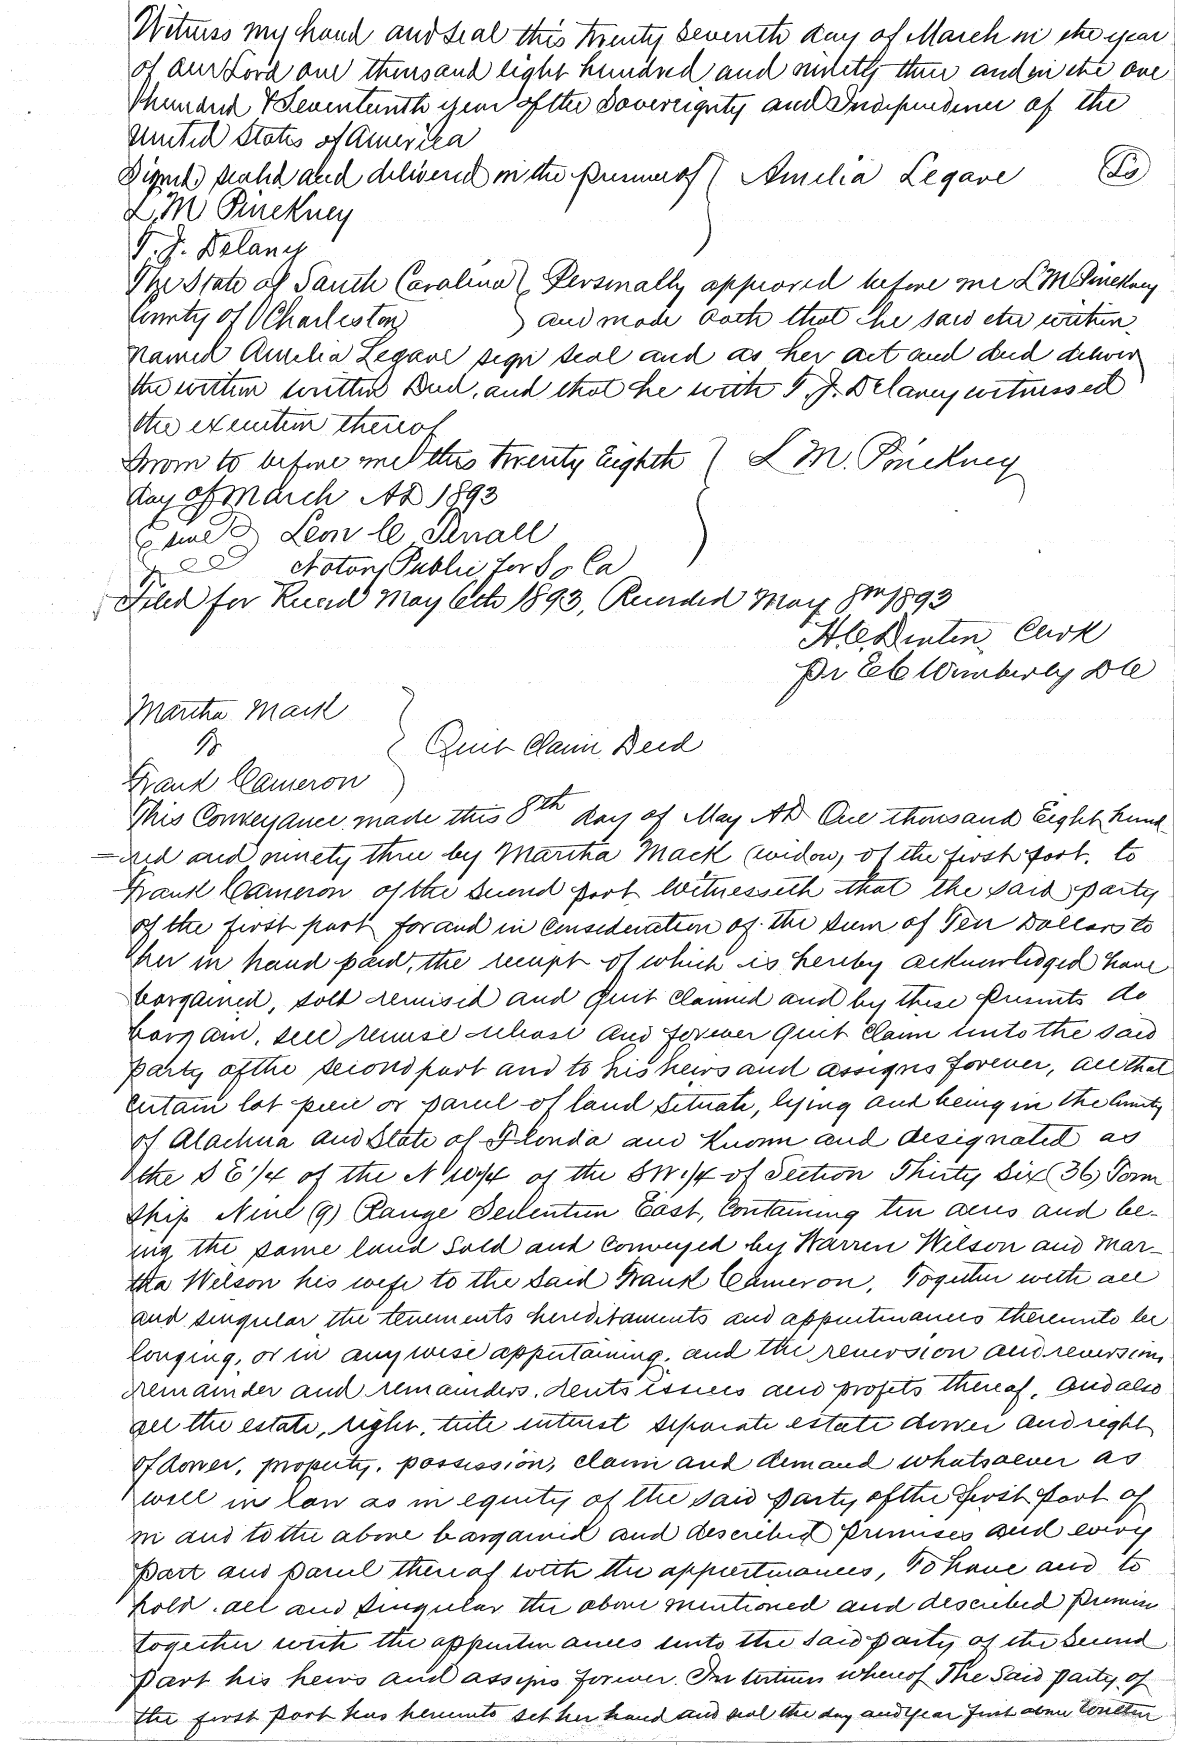 Witness my hand and seal this twenty seventh day of March in the year
of our Lord one thousand eight hundred and ninety three and in the one
hundred & Seventeenth year of the Sovereignty and Independence of the
United States of America
Signed sealed and delivered in the presence of } Amelia Legare (LS)
L. M Pinckney
T. J. Delany
The State of South Carolina } Personally appeared before me L M Pinckney
County of Charleston } and made oath that he saw the within
named Amelia Legare sign seal and as her act and deed deliver
the within written Deed, and that he with T. J. Delaney witnessed
the execution thereof
Sworn to before me this twenty Eighth } L M. Pinckney
day of March AD 1893
(seal) Leon C
Notary Public for So Ca
Filed for Record May 6th 1893, Recorded May 8th 1893
H. C. Denton, Clerk
Pr E C Wimberly DC
Martha Mack
To } Quit Claim Deed
Frank Cameron
This Conveyance made this 8th day of May AD One thousand Eight hund
-red and ninety three by Martha Mack (widow) of the first part, to
Frank Cameron of the Second part Witnesseth that the said party
of the first part for and in consideration of the sum of Ten Dollars to
her in hand paid, the receipt of which is hereby acknowledged have
bargained, sold remised and quit claimed and by these presents do
bargain, sell remise release and forever quit claim unto the said
party of the second part and to his heirs and assigns forever, all that
certain lot piece or parcel of land situate, lying and being in the County
of Alachua and State of Florida and Known and designated as
the S E 1/4 of the N W 1/4 of the SW 1/4 of Section Thirty Six (36) Town
ship Nine (9) Range Seventeen East, Containing ten acres and be-
ing the same land Sold and conveyed by Warren Wilson and Mar-
tha Wilson his wife to the said Frank Cameron, Together with all
and singular the tenements hereditaments and appurtenances thereunto be
longing, or in any wise appertaining, and the reversion and reversions
remainder and remainders, rents issues and profits thereof, and also
all the estate, right, title interest separate estate dower and right
of dower, property, possession, claim and demand whatsoever as
well in law as in equity of the said party of the first part of
in and to the above bargained and described premises and every
part and parcel thereof with the appurtenances, To have and to
hold all and singular the above mentioned and described premises
together with the appurtenances unto the said party of the Second
part his heirs and assigns forever In testimony whereof The Said party of
the first part has hereunto set her hand and seal the day and year first above written